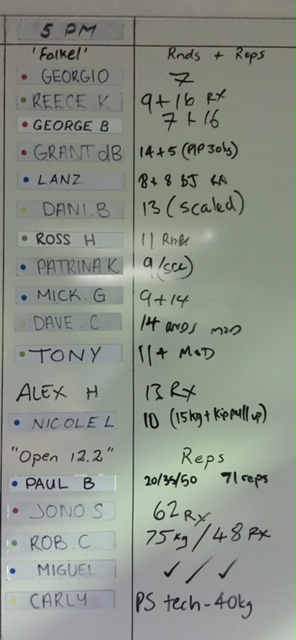 5 PM
'Falkel' Rnds + Reps
GEORGIO 7
REECE K 9+16 RX
GEORGE B 7+16
GRANT dB 14+5 (PIP 30kg)
LANZ 8+8 BJ
DANI.B 13 (scaled)
ROSS H 11 Rnds
PATRINA K 9 (sce)
MICK. G 9+14
DAVE. C 14 RNDS MOD
TONY 11+ MOD
ALEX H 13 RX
NICOLE L 10 (15kg + Kip pull up)
"Open 12.2" Reps
PAUL B 20/35/50 71 reps
JONO S 62 RX
ROB. C 75kg / 48 RX
MIGUEL ✓ / ✓
CARLY PS tech - 40kg